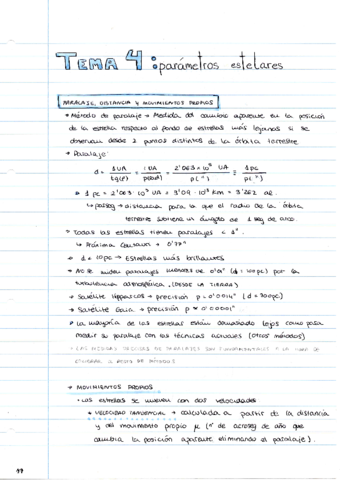 TEMA 4: parámetros estelares
PARALAJE, DISTANCIA Y MOVIMIENTOS PROPIOS
• Método de paralaje → Medida del cambio aparente en la posición
de la estrella respecto al fondo de estrellas más lejanas si se
observan desde 2 puntos distintos de la órbita terrestre
• Paralaje:
d = 1UA / tg(p) = 1UA / p(rad) = 2'063·10⁵ UA / p(") = 1pc / p(")
1 pc = 2'063·10⁵ UA = 3'09·10¹³ Km = 3'262 al.
↳ parseg → distancia para la que el radio de la órbita
terrestre subtiene un ángulo de 1 seg de arco.
• Todas las estrellas tienen paralajes < 1".
↳ Próxima Centauri → 0'77"
d < 10pc → Estrellas más brillantes
No se miden paralajes menores de 0'01" (d = 100pc) por la
turbulencia atmosférica. (DESDE LA TIERRA)
→ Satélite Hipparcos → precisión p = 0'001" (d = 300pc)
→ Satélite Gaia → precisión p ≈ 0'0001"
La mayoría de las estrellas están demasiado lejos como para
medir su paralaje con las técnicas actuales (otros métodos)
• LAS MEDIDAS DIRECTAS DE PARALAJES SON FUNDAMENTALES A LA HORA DE
CALIBRAR EL RESTO DE MÉTODOS
→ MOVIMIENTOS PROPIOS
• Las estrellas se mueven con dos velocidades
VELOCIDAD TANGENCIAL → calculada a partir de la distancia
y del movimiento propio μ (nº de arcoseg de año que
cambia la posición aparente eliminando el paralaje).